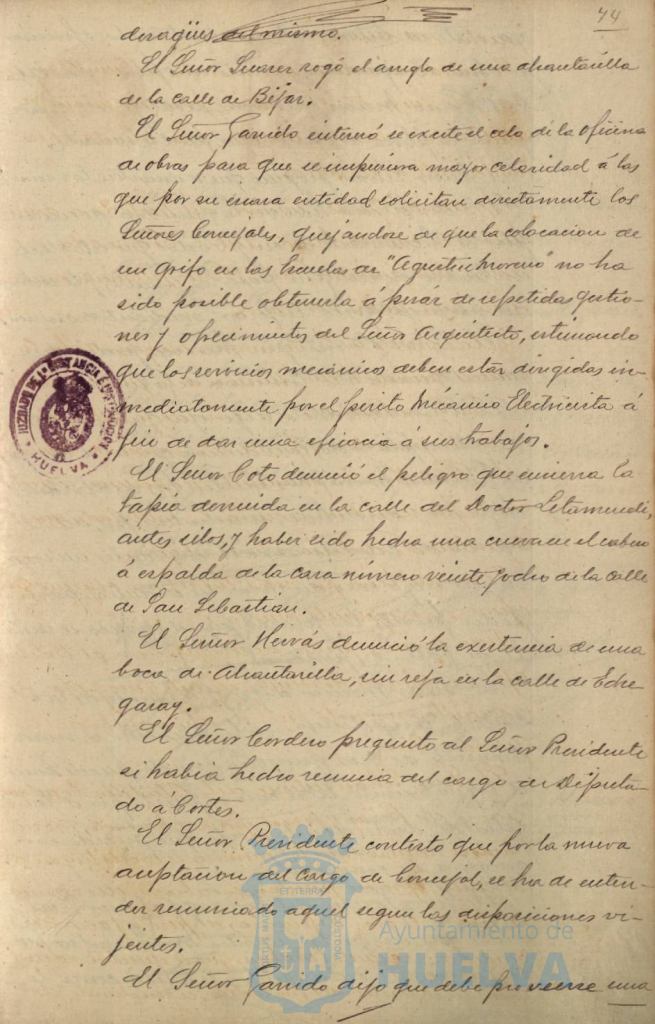 44
desagües del mismo.
El Señor Suarez rogó el arreglo de una alcantarilla
de la calle de Béjar.
El Señor Garrido interesó se excite el celo de la oficina
de obras para que se imprimiera mayor celeridad á las
que por su escasa entidad solicitan directamente los
Señores Concejales, quejándose de que la colocacion de
un grifo en las Escuelas de "Agustin Moreno" no ha
sido posible obtenerla á pesar de repetidas gestio-
nes y ofrecimientos del Señor Arquitecto, estimando
que los servicios mecánicos deben estar dirigidos in-
mediatamente por el perito Mecánico Electricista á
fin de dar una eficacia á sus trabajos.
El Señor Coto denunció el peligro que encierra la
tapia derruida en la calle del Doctor Letamendi,
antes silos, y haber sido hecha una cueva en el cabezo
á espalda de la casa número veinte y ocho de la calle
de San Sebastian.
El Señor Hervás denunció la existencia de una
boca de Alcantarilla, sin reja en la calle de Eche
garay.
El Señor Cordero pregunto al Señor Presidente
si habia hecho renuncia del cargo de Diputa-
do á Cortes.
El Señor Presidente contestó que por la nueva
aceptacion del cargo de Concejal, se ha de enten-
der renunciado aquel segun las disposiciones vi-
jentes.
El Señor Garrido dijo que debe proveerse una
JUZGADO DE 1ª INSTANCIA E INSTRUCCION
HUELVA
Ayuntamiento de
HUELVA